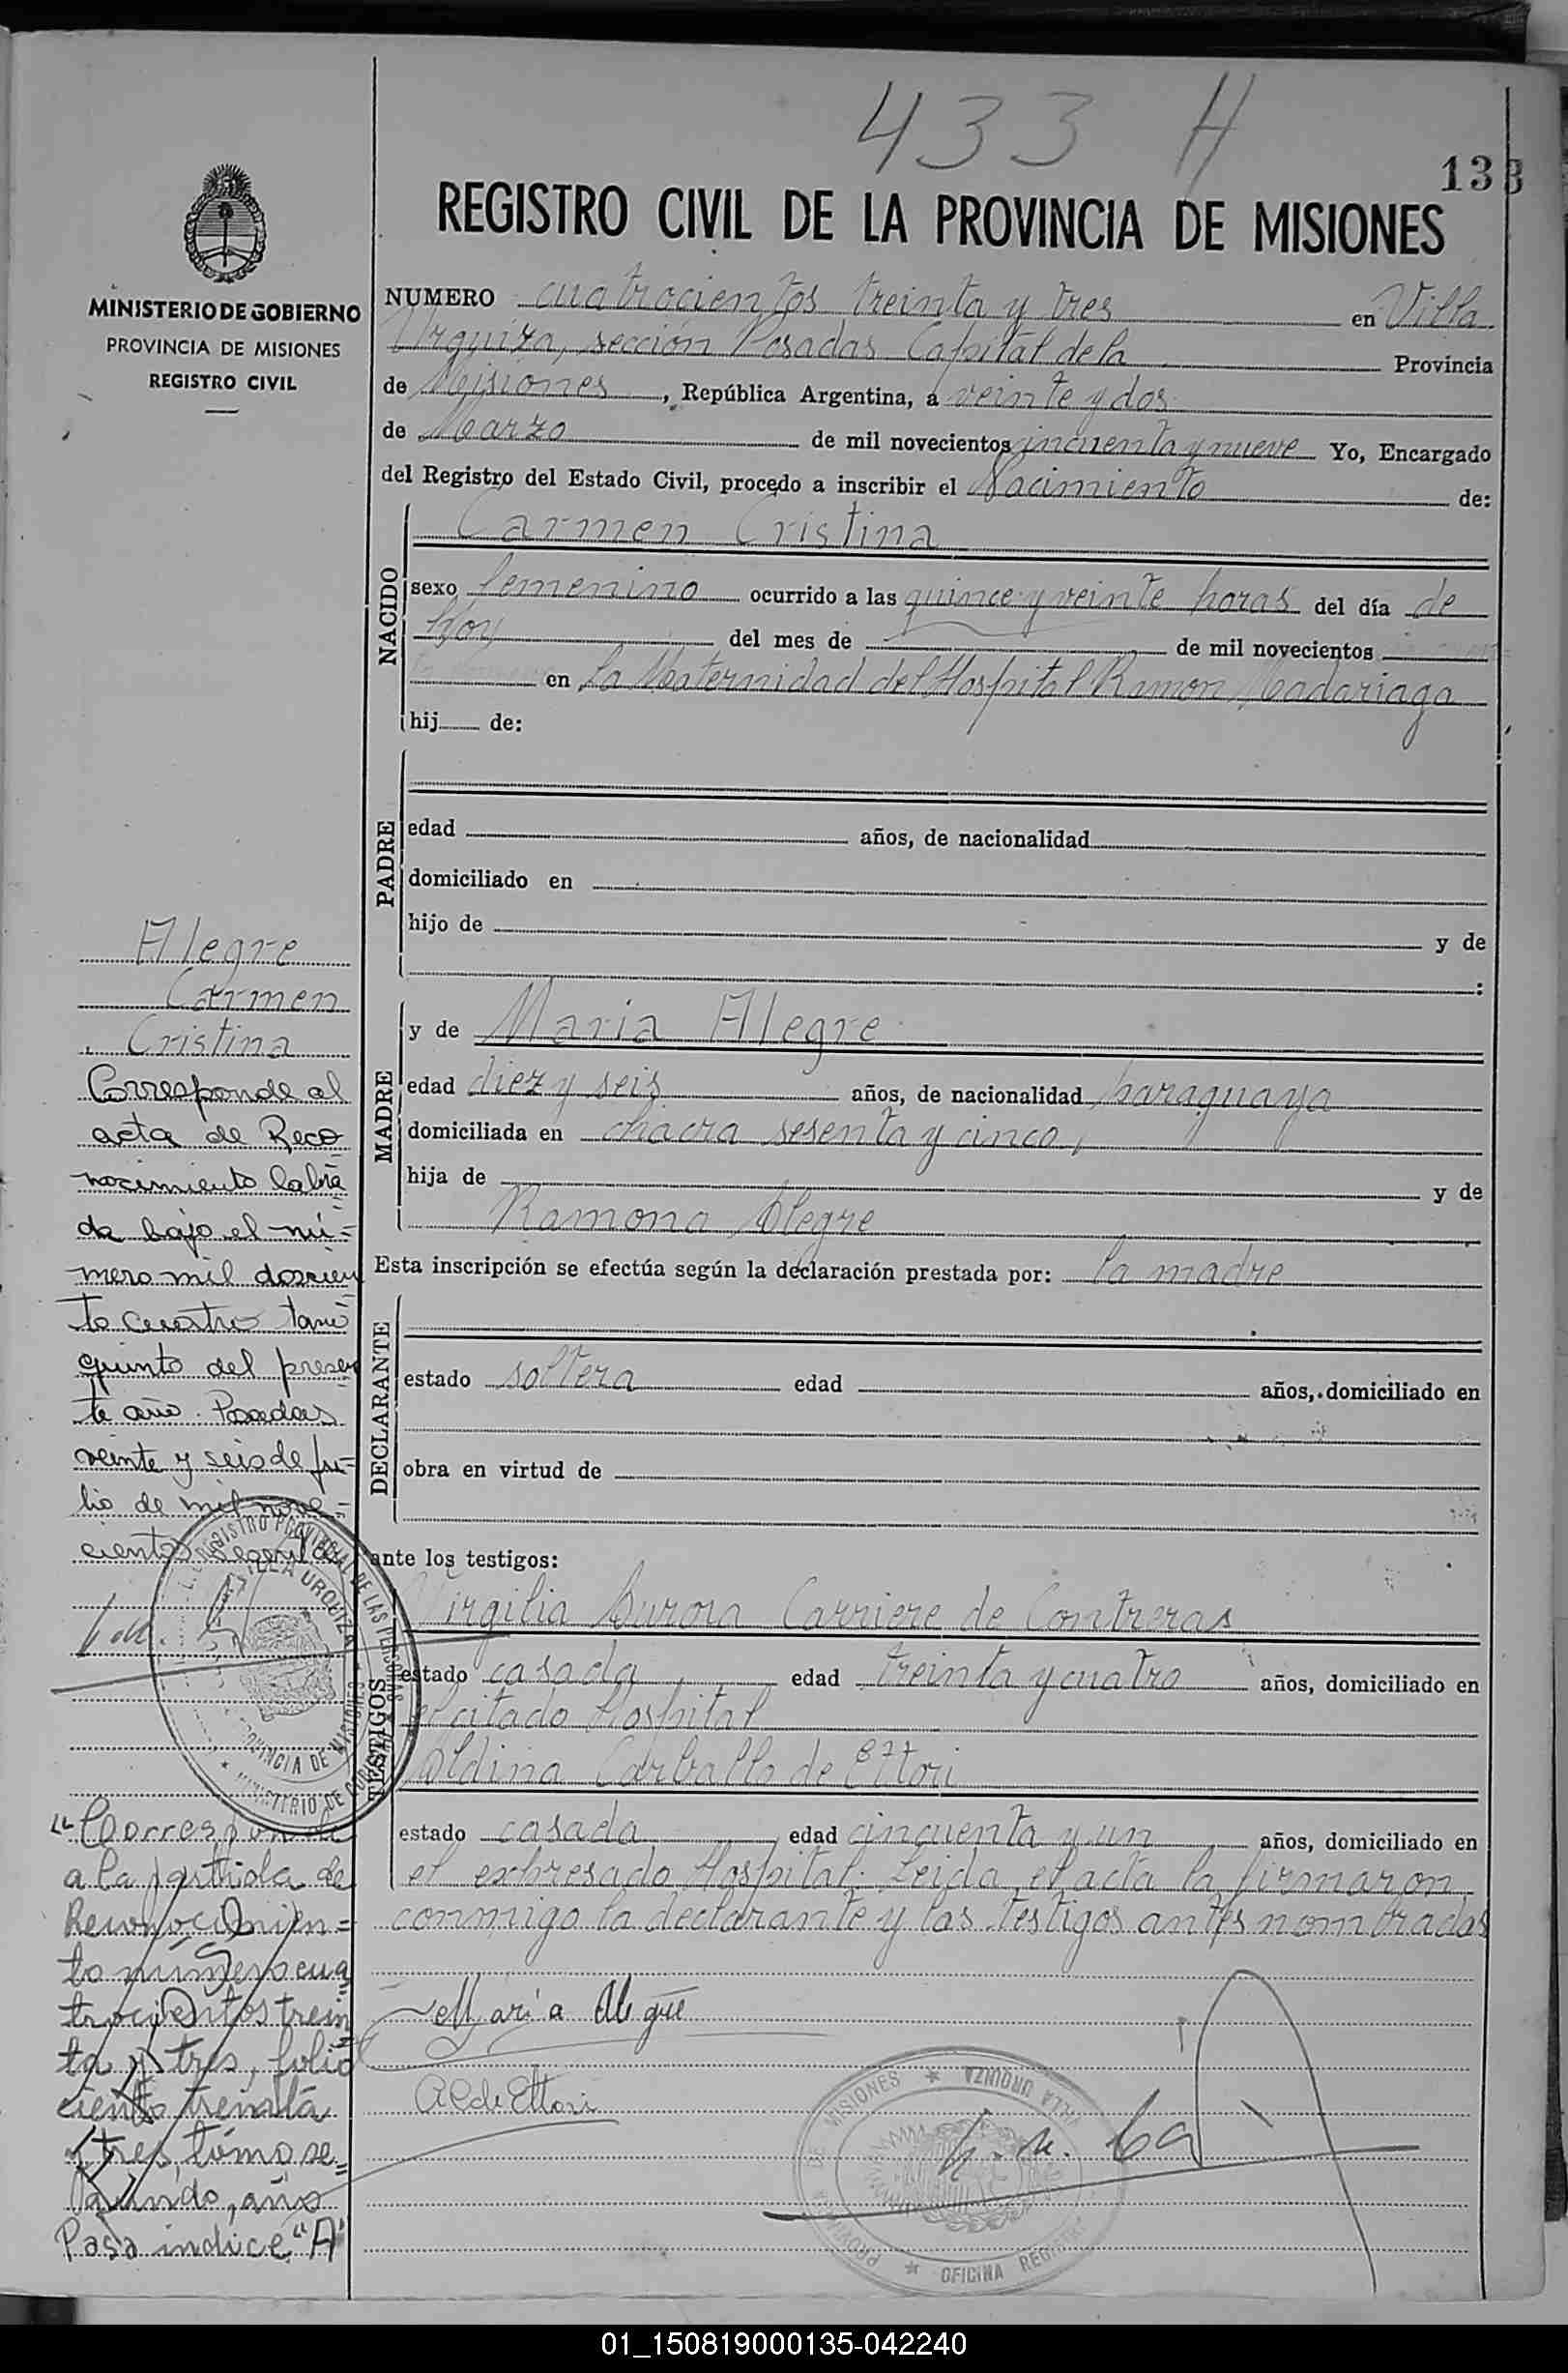 433 H
133
REGISTRO CIVIL DE LA PROVINCIA DE MISIONES
MINISTERIO DE GOBIERNO
PROVINCIA DE MISIONES
REGISTRO CIVIL
NUMERO cuatrocientos treinta y tres en Villa
Urquiza, sección Posadas Capital de la Provincia
de Misiones, República Argentina, a veinte y dos
de Marzo de mil novecientos cincuenta y nueve Yo, Encargado
del Registro del Estado Civil, procedo a inscribir el Nacimiento de:
NACIDO
Carmen Cristina
sexo femenino ocurrido a las quince y veinte horas del día de
hoy del mes de de mil novecientos
en La Maternidad del Hospital Ramon Madariaga
hij de:
PADRE
edad años, de nacionalidad
domiciliado en
hijo de y de
:
MADRE
y de Maria Alegre
edad diez y seis años, de nacionalidad paraguaya
domiciliada en chacra sesenta y cinco,
hija de y de
Ramona Alegre
Esta inscripción se efectúa según la declaración prestada por: la madre
DECLARANTE
estado soltera edad años, domiciliado en
obra en virtud de
ante los testigos:
TESTIGOS
Virgilia Aurora Carriere de Contreras
estado casada edad treinta y cuatro años, domiciliado en
el citado Hospital
Aldina Carballo de Ettori
estado casada edad cincuenta y un años, domiciliado en
el expresado Hospital. Leida el acta la firmaron
conmigo la declarante y las testigos antes nombradas
Maria Alegre
A C de Ettori
Alegre
Carmen
Cristina
Corresponde al
acta de Reco
nocimiento labra
da bajo el nú=
mero mil doscien
to cuatro tomo
quinto del presen
te año. Posadas
veinte y seis de ju=
lio de mil nove=
cientos sesenta
"Corresponde
a la partida de
Reconocimien=
to número cua
trocientos trein
ta y tres, folio
ciento treinta
y tres, tómo se=
gundo, año
Pasa indice "A"
REGISTRO PROVINCIAL DE LAS PERSONAS
VILLA URQUIZA
PROVINCIA DE MISIONES
MINISTERIO DE GOBIERNO
MISIONES * VILLA URQUIZA
OFICINA REGISTRO
01_150819000135-042240